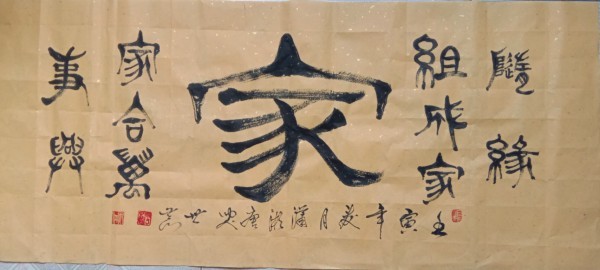 隨緣
組成家
家
家合萬
事興
壬寅年夏月瀟湘唐世